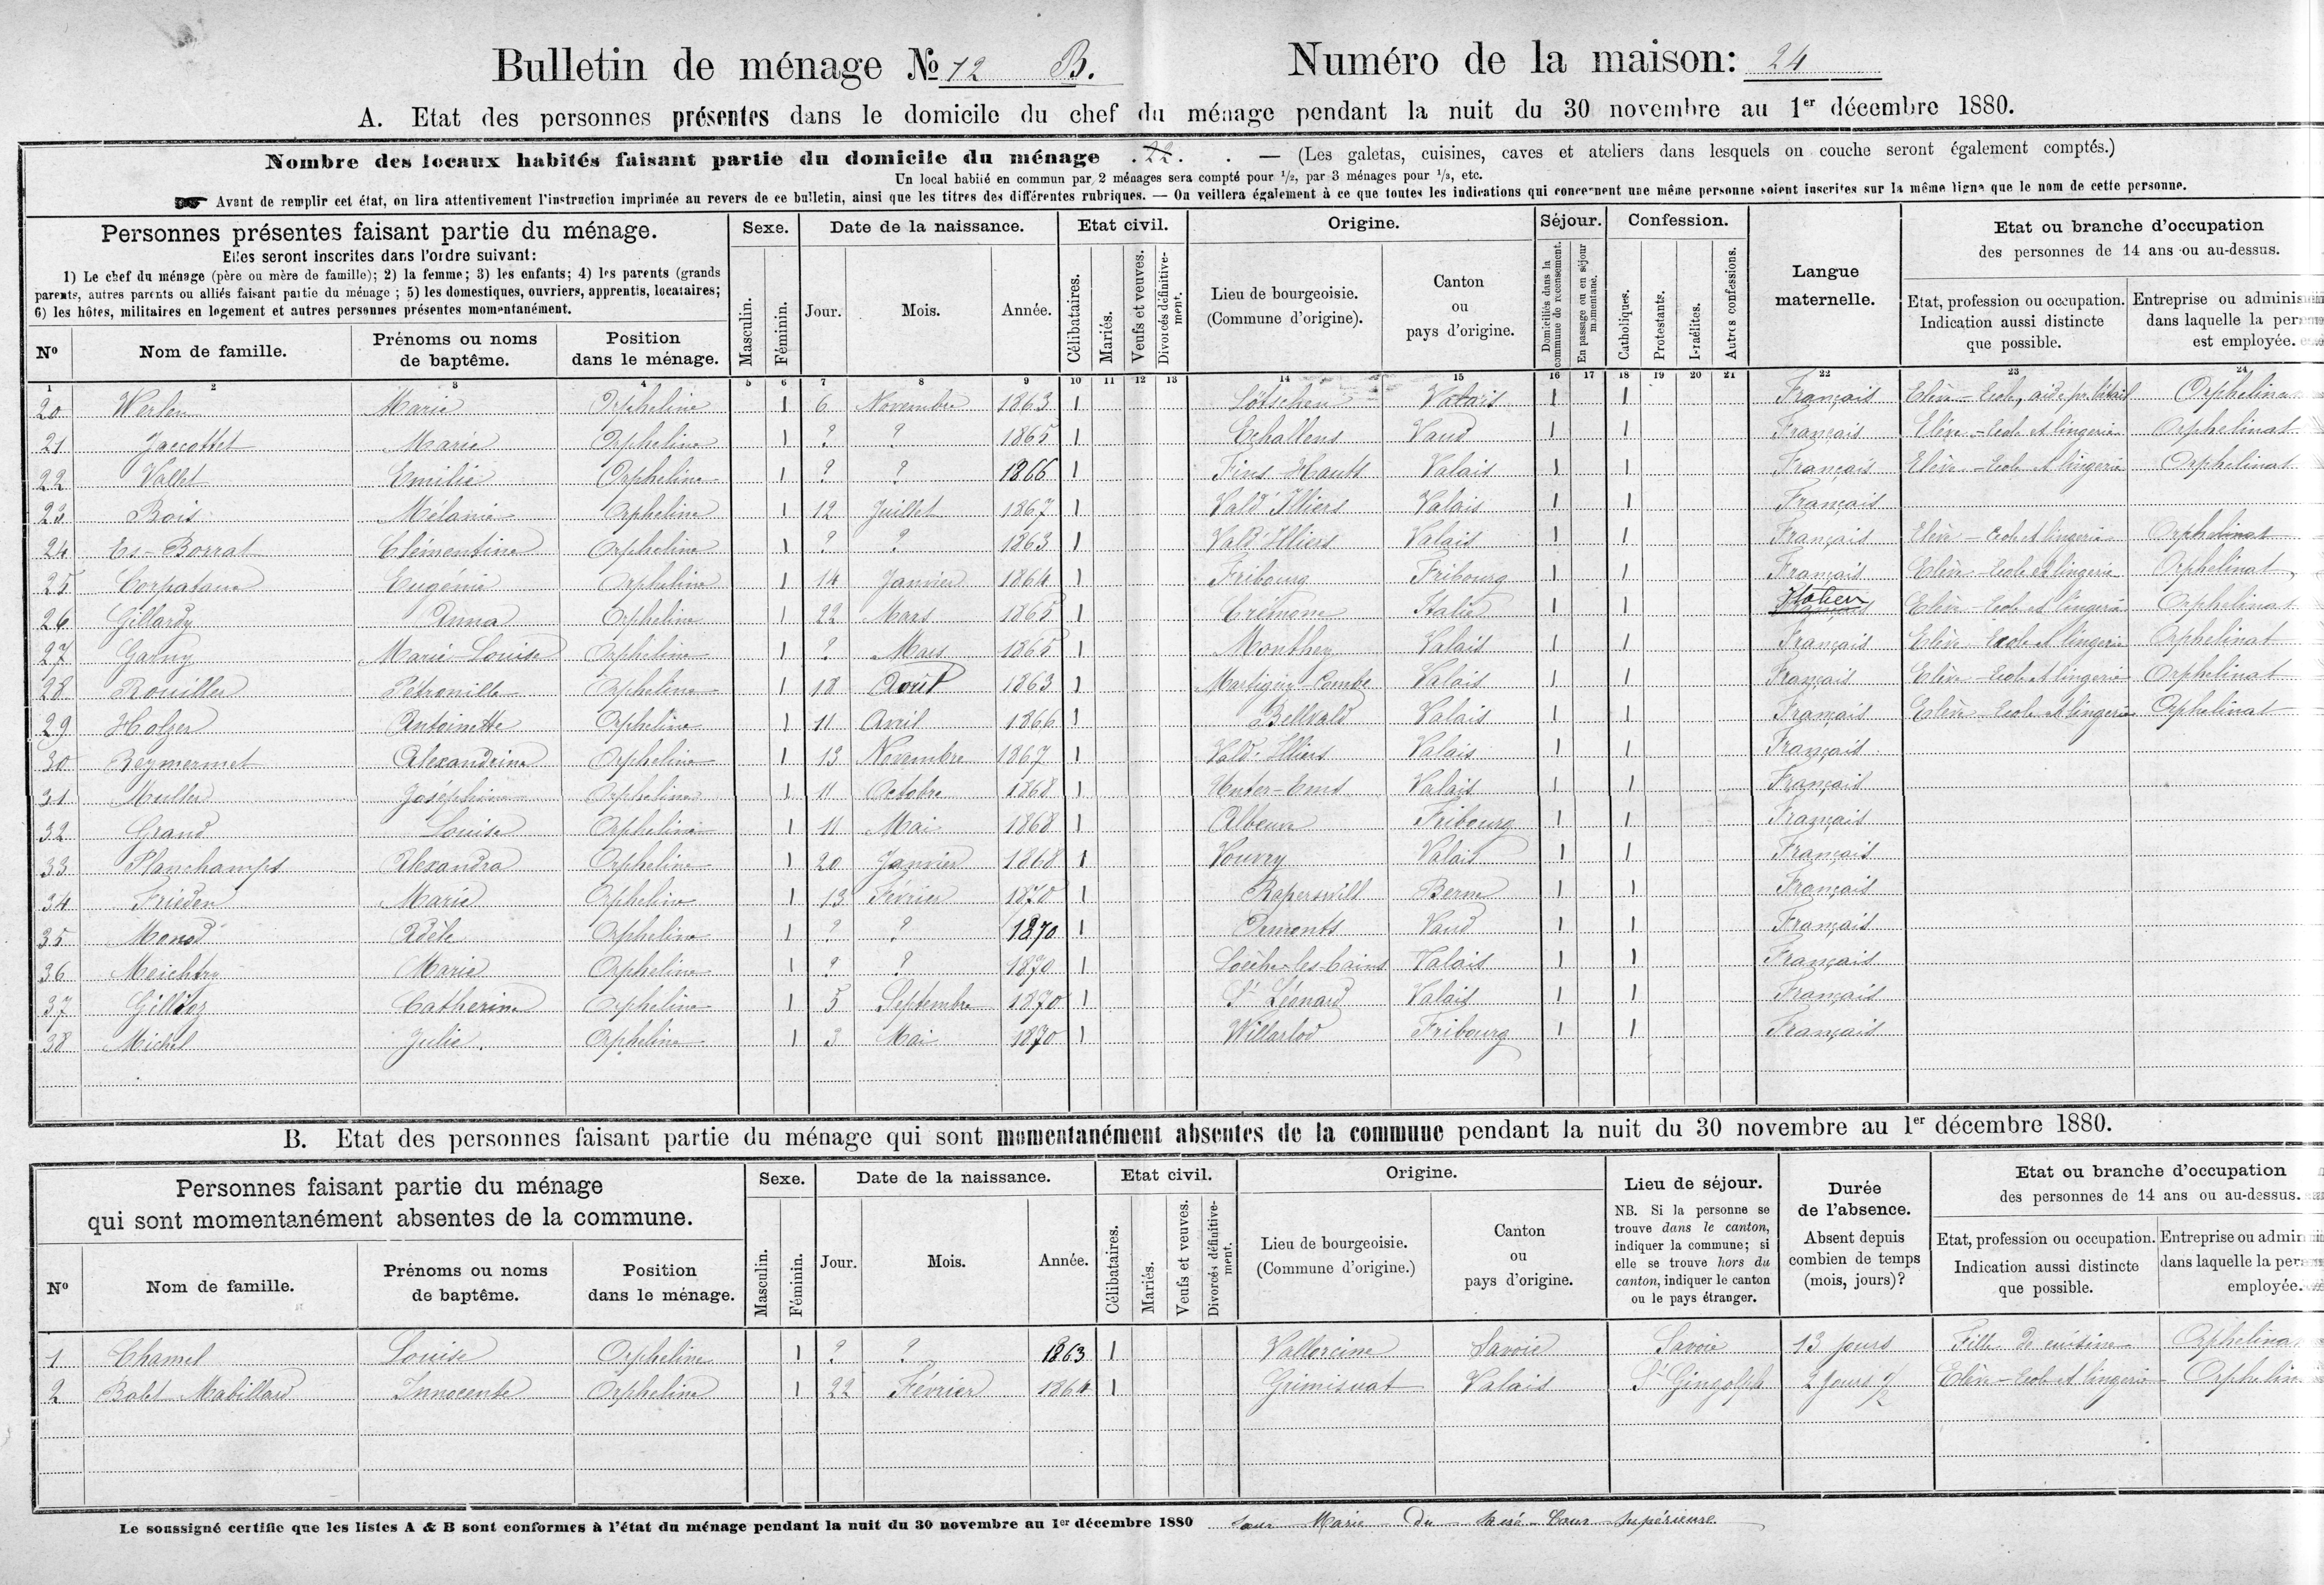 Bulletin de ménage No 12 B. Numéro de la maison: 24
A. Etat des personnes présentes dans le domicile du chef du ménage pendant la nuit du 30 novembre au 1er décembre 1880.
Nombre des locaux habités faisant partie du domicile du ménage . 22 . . — (Les galetas, cuisines, caves et ateliers dans lesquels on couche seront également comptés.)
Un local habité en commun par 2 ménages sera compté pour 1/2, par 3 ménages pour 1/3, etc.
☛ Avant de remplir cet état, on lira attentivement l'instruction imprimée au revers de ce bulletin, ainsi que les titres des différentes rubriques. — On veillera également à ce que toutes les indications qui concernent une même personne soient inscrites sur la même ligne que le nom de cette personne.
Personnes présentes faisant partie du ménage.
Elles seront inscrites dans l'ordre suivant:
1) Le chef du ménage (père ou mère de famille); 2) la femme; 3) les enfants; 4) les parents (grands
parents, autres parents ou alliés faisant partie du ménage ; 5) les domestiques, ouvriers, apprentis, locataires;
6) les hôtes, militaires en logement et autres personnes présentes momentanément.
No Nom de famille. Prénoms ou noms de baptême. Position dans le ménage.
Sexe. Masculin. Féminin.
Date de la naissance. Jour. Mois. Année.
Etat civil. Célibataires. Mariés. Veufs et veuves. Divorcés définitivement.
Origine. Lieu de bourgeoisie. (Commune d'origine). Canton ou pays d'origine.
Séjour. Domiciliés dans la commune de recensement. En passage ou en séjour momentané.
Confession. Catholiques. Protestants. Israélites. Autres confessions.
Langue maternelle.
Etat ou branche d'occupation
des personnes de 14 ans ou au-dessus.
Etat, profession ou occupation. Indication aussi distincte que possible.
Entreprise ou adminis
dans laquelle la per
est employée.
1 2 3 4 5 6 7 8 9 10 11 12 13 14 15 16 17 18 19 20 21 22 23 24
20 Werlen Marie Orpheline 1 6 Novembre 1863 1 Lötschen Valais 1 1 Français Elève - Ecole, Orphelina
21 Jaccottet Marie Orpheline 1 ? ? 1865 1 Echallens Vaud 1 1 Français Elève - Ecole et lingerie Orphelinat
22 Vallet Emilie Orpheline 1 ? ? 1866 1 Fins-Hauts Valais 1 1 Français Elève - Ecole et lingerie Orphelinat
23 Bois Mélanie Orpheline 1 12 Juillet 1867 1 Val d'Illiers Valais 1 1 Français
24 Es-Borrat Clémentine Orpheline 1 ? ? 1863 1 Val d'Illiers Valais 1 1 Français Elève - Ecole et lingerie Orphelinat
25 Corpataux Eugénie Orpheline 1 14 Janvier 1864 1 Fribourg Fribourg 1 1 Français Elève - Ecole et lingerie Orphelinat
26 Gillardy Anna Orpheline 1 22 Mars 1865 1 Crémone Italie 1 1 Italien Elève - Ecole et lingerie Orphelinat
27 Garny Marie-Louise Orpheline 1 ? Mars 1865 1 Monthey Valais 1 1 Français Elève - Ecole et lingerie Orphelinat
28 Rouiller Pétronille Orpheline 1 18 Août 1863 1 Martigny Combe Valais 1 1 Français Elève - Ecole et lingerie Orphelinat
29 Holzer Antoinette Orpheline 1 11 Avril 1866 1 Bellvald Valais 1 1 Français Elève - Ecole et lingerie Orphelinat
30 Reymermet Alexandrine Orpheline 1 13 Novembre 1867 1 Val d'Illiers Valais 1 1 Français
31 Muller Joséphine Orpheline 1 11 Octobre 1868 1 Unter-Ems Valais 1 1 Français
32 Grand Louise Orpheline 1 11 Mai 1868 1 Albeuve Fribourg 1 1 Français
33 Planchamps Alexandra Orpheline 1 20 Janvier 1868 1 Vouvry Valais 1 1 Français
34 Frieden Marie Orpheline 1 13 Février 1870 1 Raperswill Berne 1 1 Français
35 Monod Adèle Orpheline 1 ? ? 1870 1 Ormonts Vaud 1 1 Français
36 Meichtry Marie Orpheline 1 ? ? 1870 1 Loèche-les-bains Valais 1 1 Français
37 Gillioz Catherine Orpheline 1 5 Septembre 1870 1 St Léonard Valais 1 1 Français
38 Michel Julie. Orpheline 1 3 Mai 1870 1 Willarlod Fribourg 1 1 Français
B. Etat des personnes faisant partie du ménage qui sont momentanément absentes de la commune pendant la nuit du 30 novembre au 1er décembre 1880.
Personnes faisant partie du ménage
qui sont momentanément absentes de la commune.
No Nom de famille. Prénoms ou noms de baptême. Position dans le ménage.
Sexe. Masculin. Féminin.
Date de la naissance. Jour. Mois. Année.
Etat civil. Célibataires. Mariés. Veufs et veuves. Divorcés définitivement.
Origine. Lieu de bourgeoisie. (Commune d'origine.) Canton ou pays d'origine.
Lieu de séjour.
NB. Si la personne se
trouve dans le canton,
indiquer la commune; si
elle se trouve hors du
canton, indiquer le canton
ou le pays étranger.
Durée de l'absence.
Absent depuis combien de temps (mois, jours)?
Etat ou branche d'occupation
des personnes de 14 ans ou au-dessus.
Etat, profession ou occupation. Indication aussi distincte que possible.
Entreprise ou admin
dans laquelle la per
employée.
1 Chamel Louise Orpheline 1 ? ? 1863 1 Vallorcine Savoie Savoie 13 jours Fille de cuisine Orphelina
2 Balet Mabillard Innocente Orpheline 1 22 Février 1864 1 Grimisuat Valais St Gingolph 2 jours 1/2 Elève - Ecole et lingerie Orpheline
Le soussigné certifie que les listes A & B sont conformes à l'état du ménage pendant la nuit du 30 novembre au 1er décembre 1880 Sœur Marie du Sacré-Cœur Supérieure